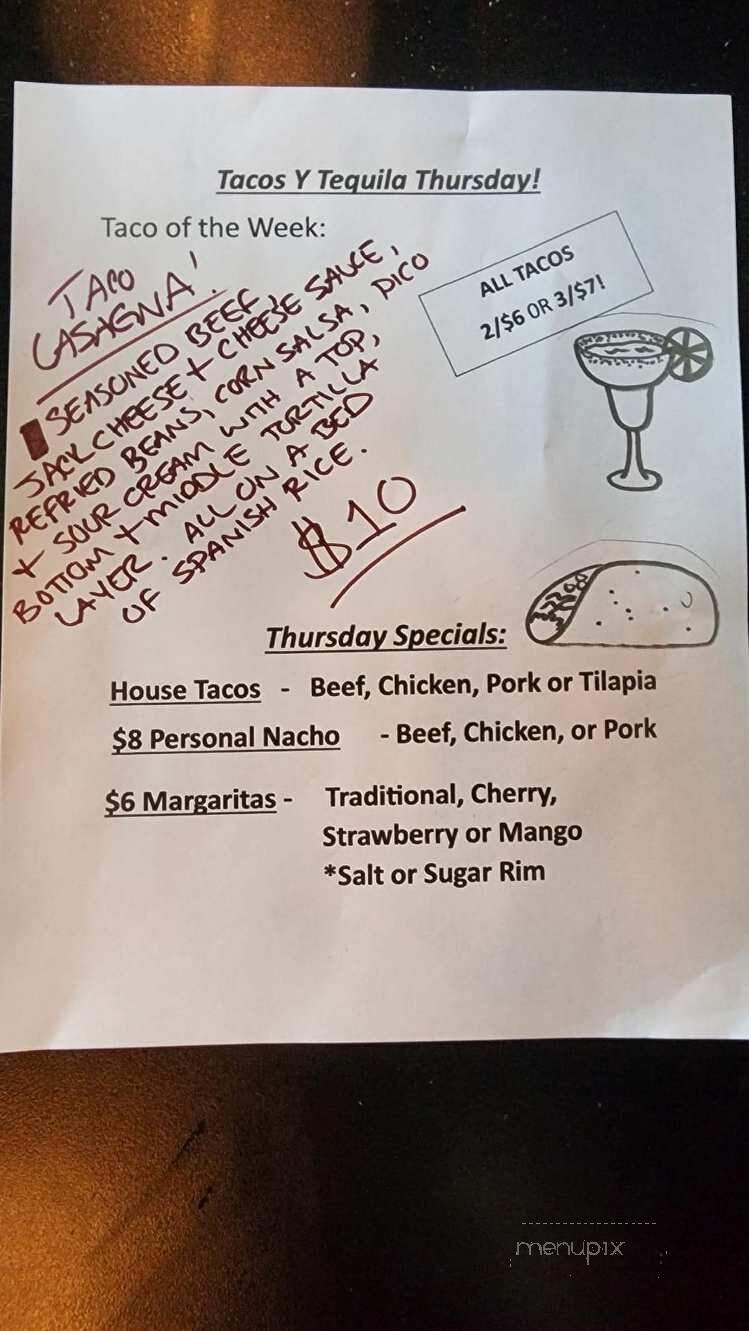 Tacos Y Tequila Thursday!
Taco of the Week:
TACO
LASAGNA!
SEASONED BEEF,
JACK CHEESE + CHEESE SAUCE,
REFRIED BEANS, CORN SALSA, PICO
+ SOUR CREAM WITH A TOP,
BOTTOM + MIDDLE TORTILLA
LAYER. ALL ON A BED
OF SPANISH RICE.
$10
ALL TACOS
2/$6 OR 3/$7!
Thursday Specials:
House Tacos - Beef, Chicken, Pork or Tilapia
$8 Personal Nacho - Beef, Chicken, or Pork
$6 Margaritas - Traditional, Cherry,
Strawberry or Mango
*Salt or Sugar Rim
menupix